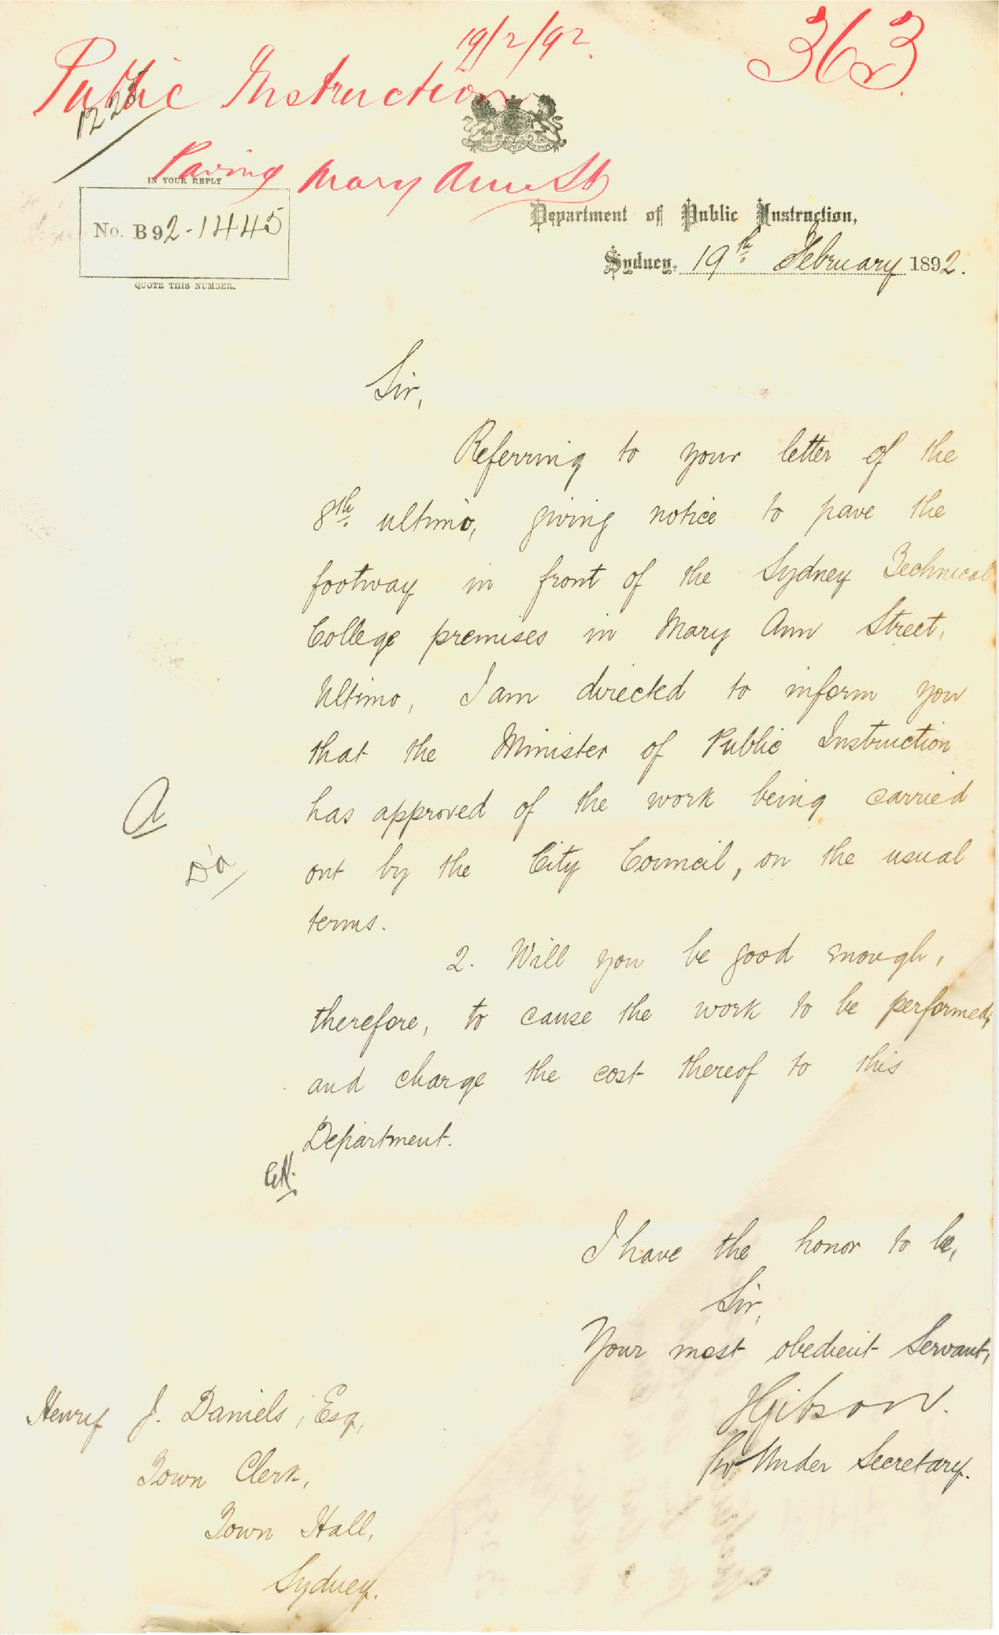 19/2/92.
363.
Public Instruction
Paving Mary Ann St
IN YOUR REPLY
No. B 92-1445
QUOTE THIS NUMBER.
Department of Public Instruction,
Sydney, 19th February 1892.
Sir,
Referring to your letter of the
8th ultimo, giving notice to pave the
footway in front of the Sydney Technical
College premises in Mary Ann Street,
Ultimo, I am directed to inform you
that the Minister of Public Instruction
has approved of the work being carried
out by the City Council, on the usual
terms.
2. Will you be good enough,
therefore, to cause the work to be performed,
and charge the cost thereof to this
Department.
I have the honor to be,
Sir,
Your most obedient Servant,
JGibson.
for Under Secretary.
Henry J. Daniels, Esq,
Town Clerk,
Town Hall,
Sydney.